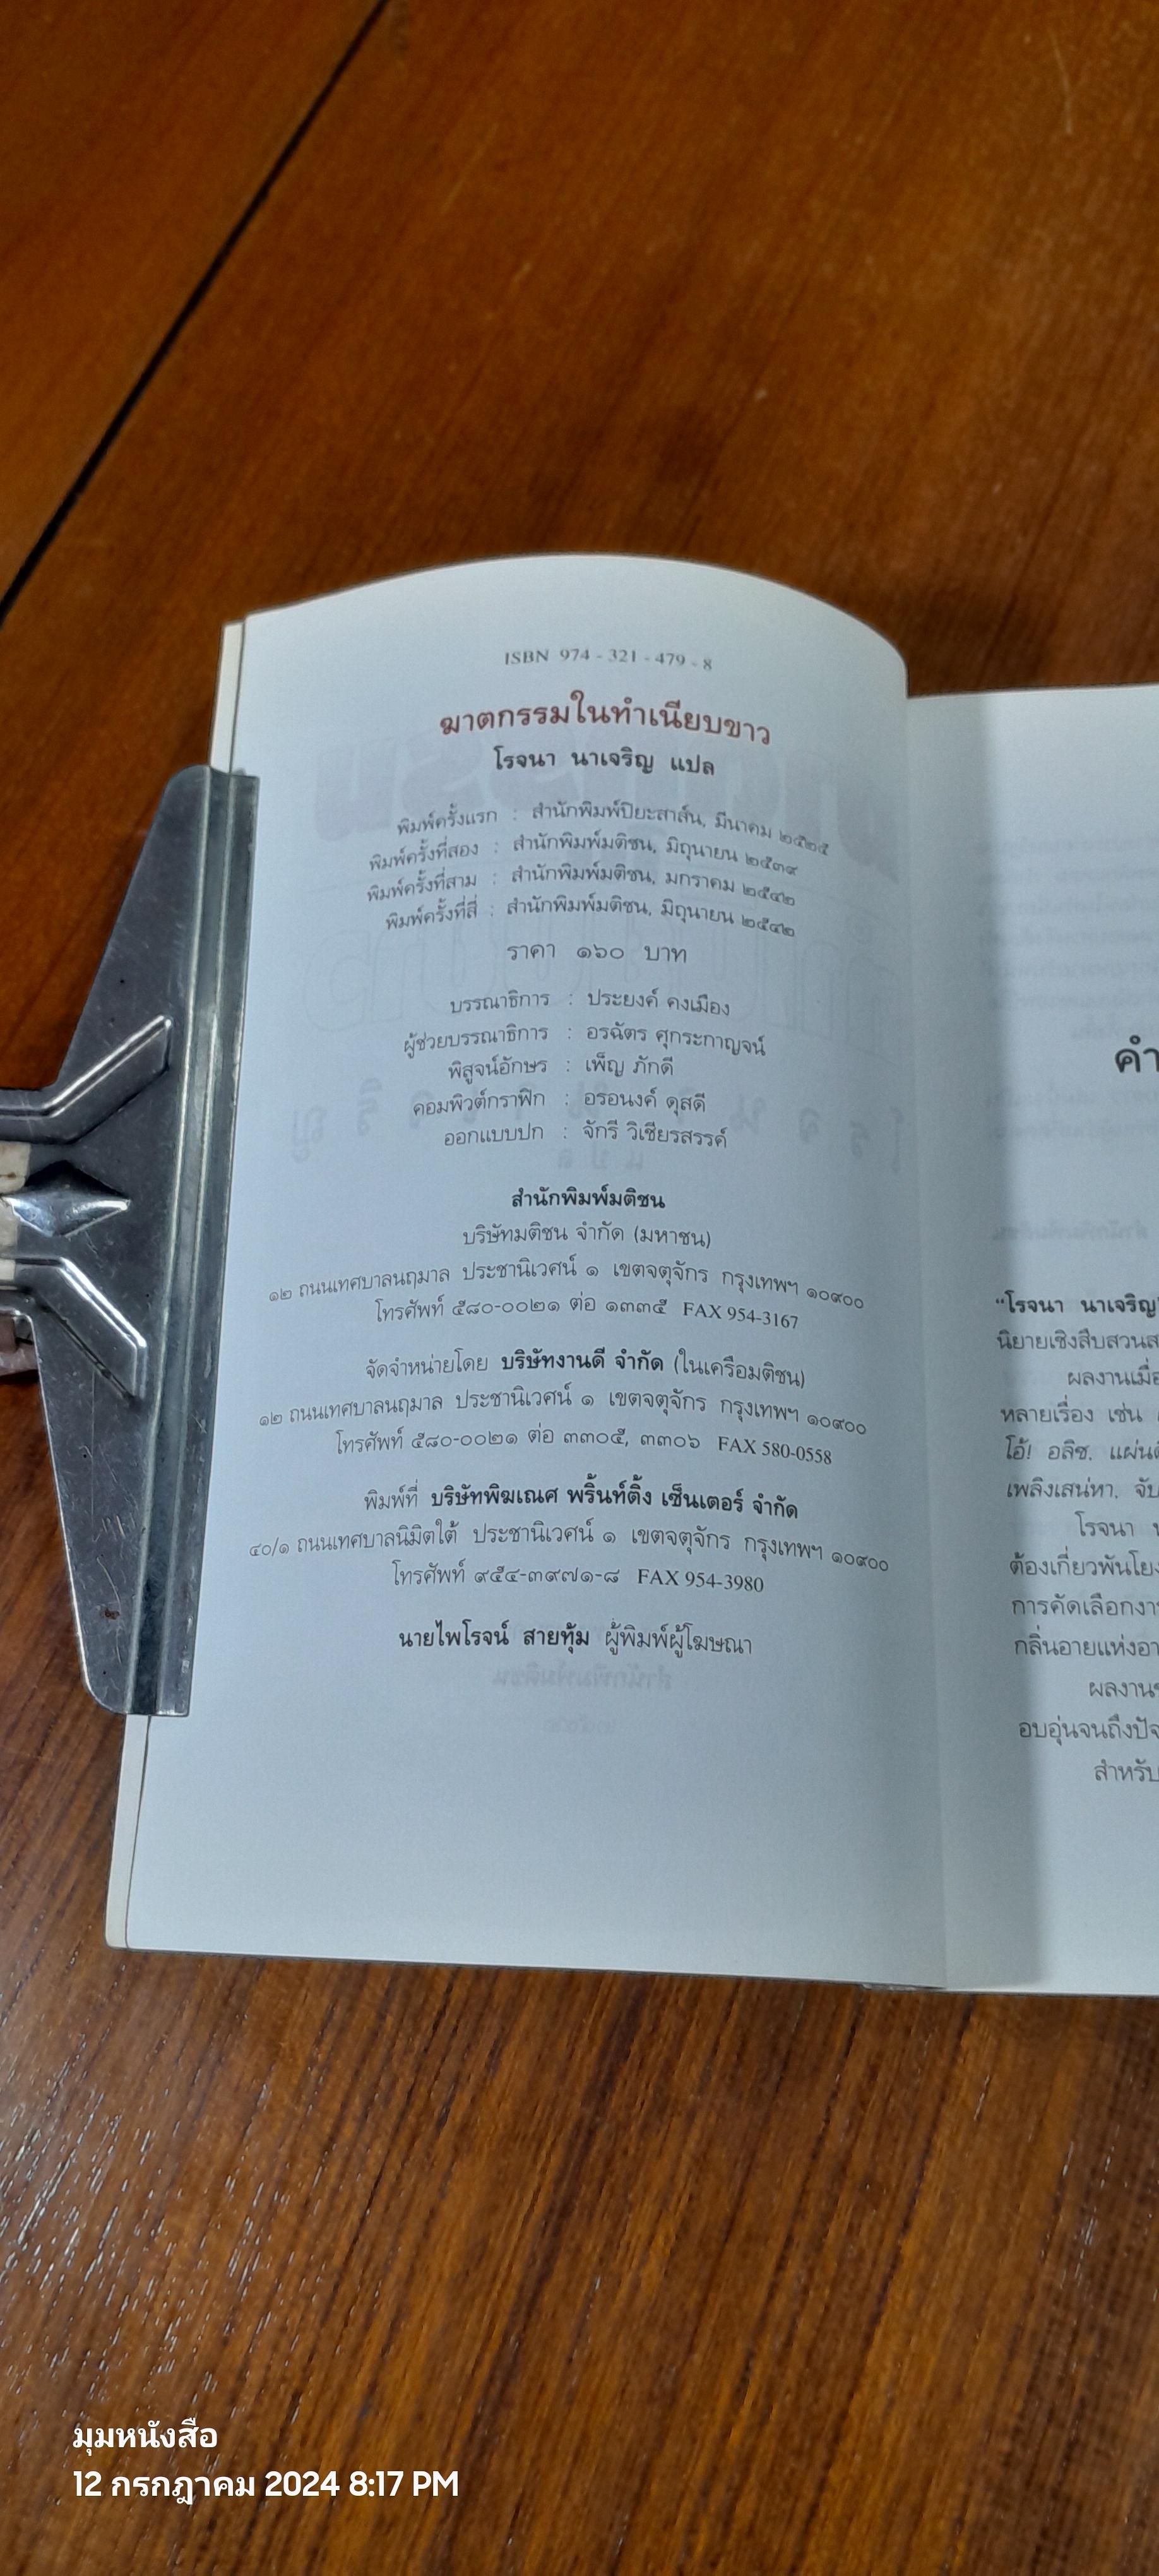 ISBN 974 - 321 - 479 - 8
ฆาตกรรมในทำเนียบขาว
โรจนา นาเจริญ แปล
พิมพ์ครั้งแรก : สำนักพิมพ์ปิยะสาส์น, มีนาคม ๒๕๒๕
พิมพ์ครั้งที่สอง : สำนักพิมพ์มติชน, มิถุนายน ๒๕๓๙
พิมพ์ครั้งที่สาม : สำนักพิมพ์มติชน, มกราคม ๒๕๔๒
พิมพ์ครั้งที่สี่ : สำนักพิมพ์มติชน, มิถุนายน ๒๕๔๒
ราคา ๑๖๐ บาท
บรรณาธิการ : ประยงค์ คงเมือง
ผู้ช่วยบรรณาธิการ : อรฉัตร ศุกระกาญจน์
พิสูจน์อักษร : เพ็ญ ภักดี
คอมพิวต์กราฟิก : อรอนงค์ ดุสดี
ออกแบบปก : จักรี วิเชียรสรรค์
สำนักพิมพ์มติชน
บริษัทมติชน จำกัด (มหาชน)
๑๒ ถนนเทศบาลนฤมาล ประชานิเวศน์ ๑ เขตจตุจักร กรุงเทพฯ ๑๐๙๐๐
โทรศัพท์ ๕๘๐-๐๐๒๑ ต่อ ๑๓๓๕ FAX 954-3167
จัดจำหน่ายโดย บริษัทงานดี จำกัด (ในเครือมติชน)
๑๒ ถนนเทศบาลนฤมาล ประชานิเวศน์ ๑ เขตจตุจักร กรุงเทพฯ ๑๐๙๐๐
โทรศัพท์ ๕๘๐-๐๐๒๑ ต่อ ๓๓๐๕, ๓๓๐๖ FAX 580-0558
พิมพ์ที่ บริษัทพิฆเณศ พริ้นท์ติ้ง เซ็นเตอร์ จำกัด
๔๐/๑ ถนนเทศบาลนิมิตใต้ ประชานิเวศน์ ๑ เขตจตุจักร กรุงเทพฯ ๑๐๙๐๐
โทรศัพท์ ๙๕๔-๓๙๗๑-๘ FAX 954-3980
นายไพโรจน์ สายทุ้ม ผู้พิมพ์ผู้โฆษณา
คำ
"โรจนา นาเจริญ"
นิยายเชิงสืบสวนส
ผลงานเมื่อ
หลายเรื่อง เช่น
โอ้! อลิซ, แผ่นดิ
เพลิงเสน่หา, จับ
โรจนา น
ต้องเกี่ยวพันโยง
การคัดเลือกงาน
กลิ่นอายแห่งอา
ผลงานข
อบอุ่นจนถึงปัจ
สำหรับ
มุมหนังสือ
12 กรกฎาคม 2024 8:17 PM